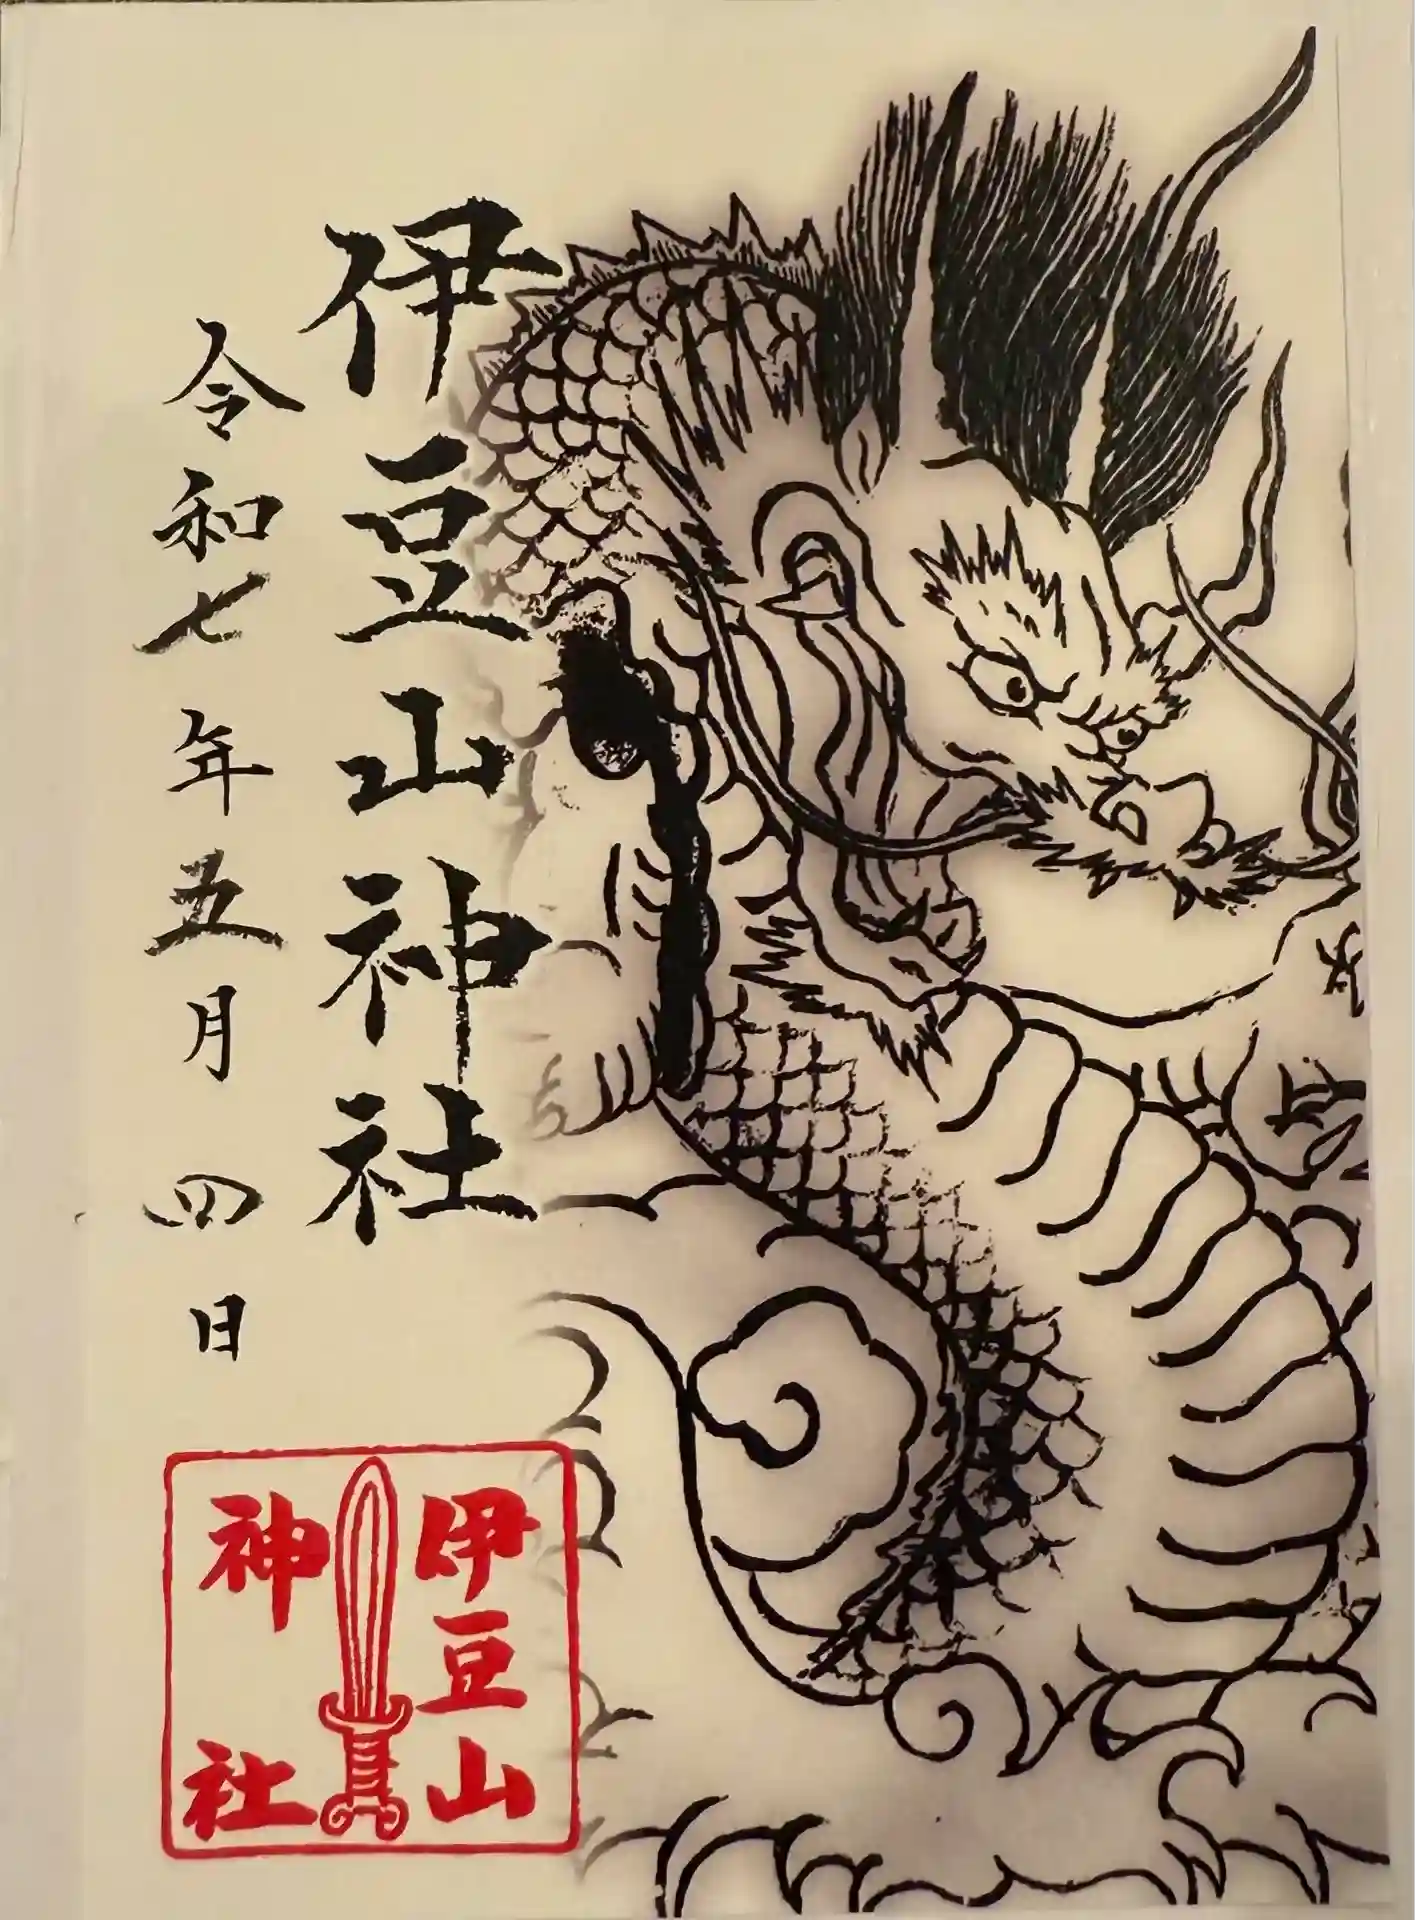 伊豆山神社
令和七年五月四日
伊豆山
神社